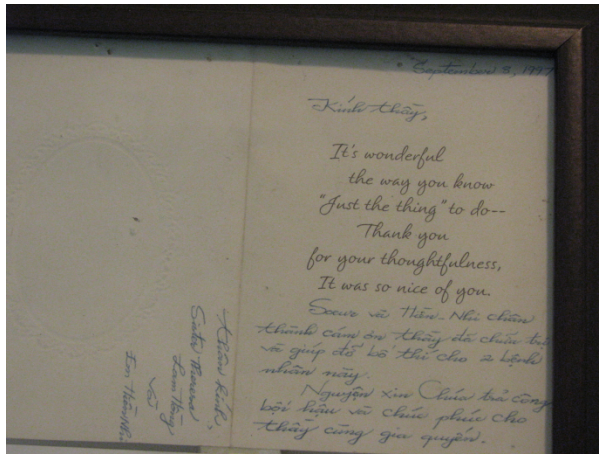 September 3, 1997
Kính thầy,
It's wonderful
the way you know
"Just the thing" to do--
Thank you
for your thoughtfulness,
It was so nice of you.
và Thân-Nhi chân
thành cám ơn thầy đã chữa trị
và giúp đỡ bố thí cho 2 bệnh
nhân này.
Nguyện xin Chúa trả công
bội hậu và chúc phúc cho
thầy cùng gia quyến.
Thân kính,
Sister
và
Em